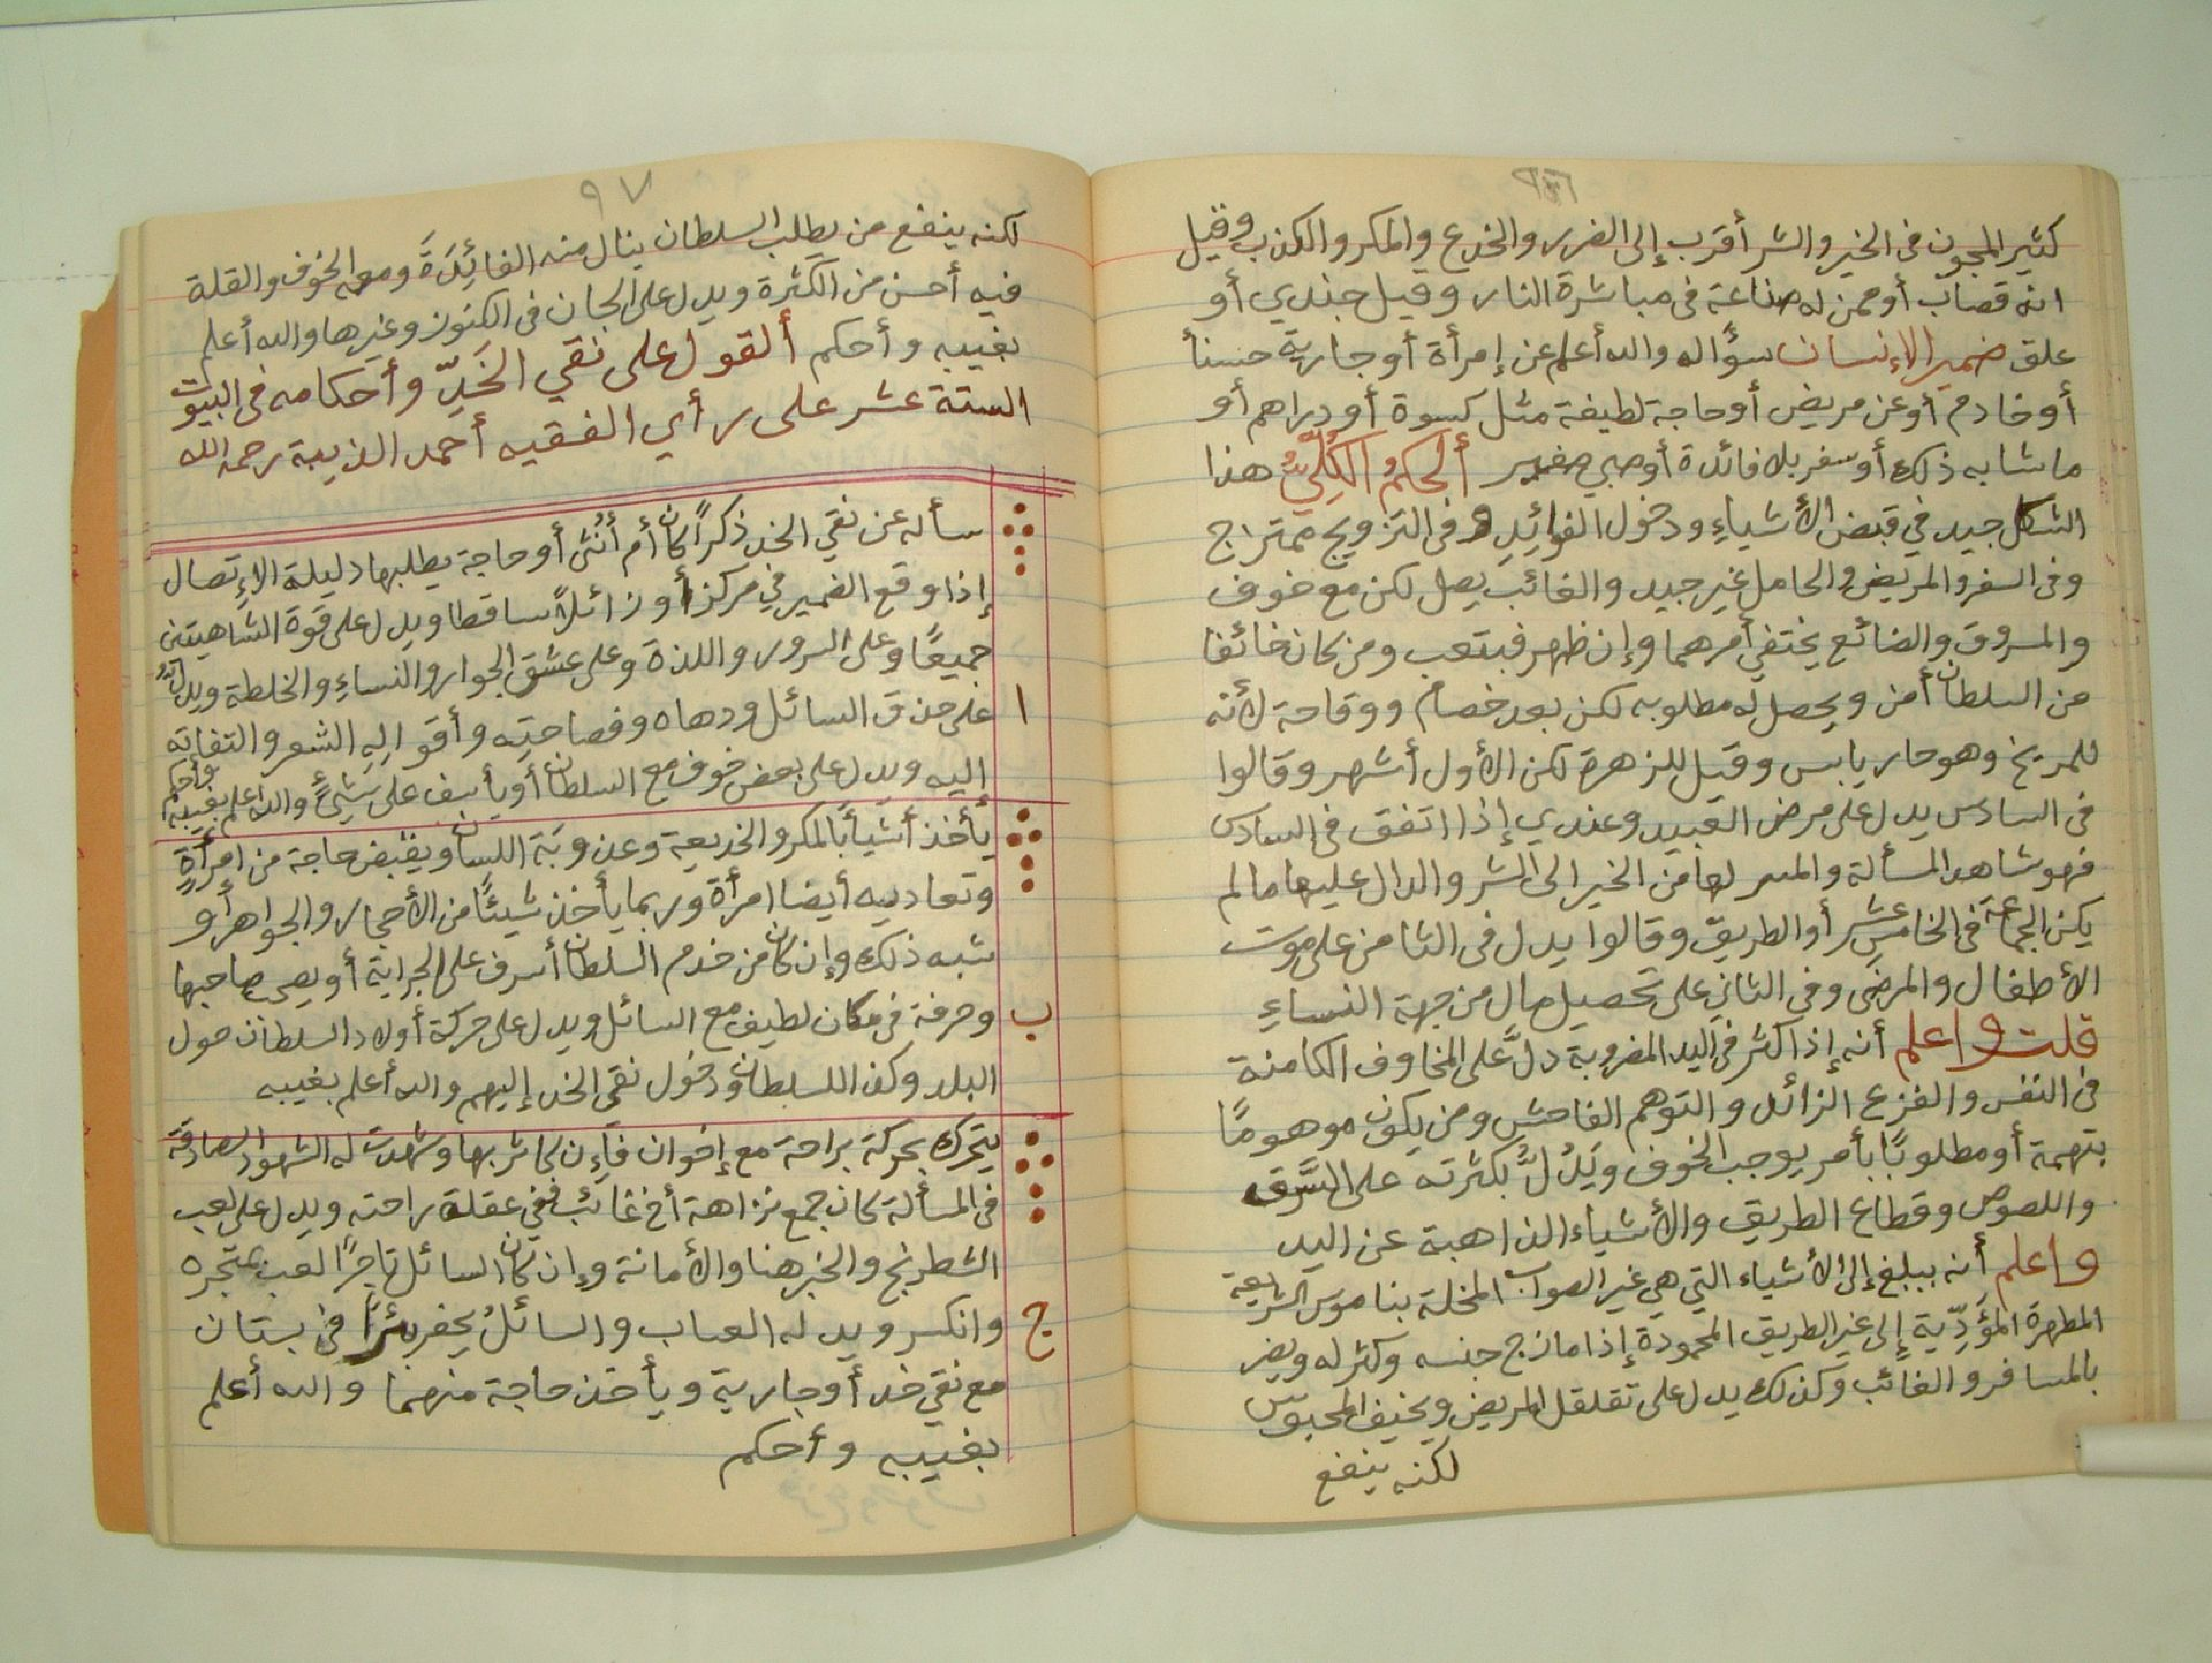 كثير المجون فى الخير والشر أقرب إلى الضرر والخدع والمكر والكذب وقيل
انه قصاب أو ممن له صناعة فى مباشرة النار وقيل جندي أو
علق ضمير الإنسان سؤاله والله أعلم عن إمرأة أو جارية حسنأ
أو خادم أو عن مريض أو حاجة لطيفة مثل كسوة أو دراهم أو
ما شابه ذلك أو سفر بلا فائدة أو صبي صغير ألحكمُ الكُلِّيُّ هذا
الشكل جيد في قبض الأشياءِ ودخول الفوائِدِ و فى التزويج ممتزاج
وفى السفر والمريض والحامل غير جيد والغائب يصل لكن مع خوف
والمسروق والضائع يختفي أمرهما وإن ظهر فبتعب ومن كان خائفا
من السلطان أمن ويحصل له مطلوبه لكن بعد خصام ووقاحة لأنه
للمريخ وهو حار يابس وقيل للزهرة لكن الأول أشهر وقالوا
فى السادس يدل على مرض العبيد وعندي إذا اتفق فى السادس
فهو شاهد المسألة والمسر لها من الخير الى الشر والدال عليها ما لم
يكن الجماعة فى الخامس عشر أو الطريق وقالوا يدل فى الثامن على موت
الأطفال والمرضى وفى الثاني على تحصيل مال من جهة النساءِ
قلت واعلم أنه إذا كثر فى اليد المضروبة دلَّ على المخاوف الكامنة
فى النفس والفزع الزائد والتوهم الفاحش ومن يكون موهومًا
بتهمة أو مطلوبًا بأمر يوجب الخوف ويَدُلُّ بكثرته على السَّرق
واللصوص وقطاع الطريق والأشياء الذاهبة عن اليد
واعلم أنه يبلغ إلى الأشياء التي هي غير الصواب المخلة بناموس الشريعة
المطهرة المؤَدِّية إلى غير الطريق المحمودة إذا مازج جنسه وكثر له ويضر
بالمسافر والغائب وكذلك يدل على تقلقل المريض ويخيف المحبوس
لكنه ينفع
٩٧
لكنه ينفع من يطلب السلطان ينال منه الفائِدَةَ ومعه الخوف والقلة
فيه أحسن من الكثرة ويدل على الجان فى الكنوز وغيرها والله أعلم
بغيبه وأحكم ألقول على نقي الخَدِّ وأحكامه فى البيوت
الستة عشر على رأي الفقيه أحمد الذيبة رحمه الله
سأله عن نقي الخد ذكرًا كان أم أنُثى أو حاجة يطلبها دليلة الإتصال
إذا وقع الضمير في مركز أو زائلاً ساقطا ويدل على قوة الشاهيتين
جميعًا وعلى السرور واللذة وعلى عشق الجوار والنساءِ والخلطة ويدلُّ
ا على حذق السائل ودهاه وفصاحتِه وأقوالِهِ الشعر والتفاته
إليه ويدل على بعض خوف مع السلطان أو يأسف على شيءٍ والله اعلم بغيبه وأحكم
يأخذ أشيأ بالمكر والخديعة وعذوبَة اللسان ويقبض حاجة من امرأةٍ
وتعاديه أيضا امرأة وربما يأخذ شيئًا من الأحجار والجواهر أو
شبه ذلك وإن كان من خدم السلطان أسرف على الجراية أو يصحب صاحبها
ب وحرفة فى مكان لطيف مع السائل ويدل على حركة أولاد السلطان حول
البلد وكذا للسلطان ودخول نقى الخد إليهم والله أعلم بغيبه
يتحرك بحركة براحة مع إخوان فإن كاثر بها وشهدت له الشهود الصادقة
فى المسألة كان جمع نزاهة أخ غائب ففي عقلة راحته ويدل على لعب
الشطرنج والخبز هنا والأمانة وإن كان السائل تاجرًا لعب بمتجره
ج وانكسر ويد له العساب والسائلُ يحفر بئرًا في بستان
مع نقي خد أو جارية ويأخذ حاجة منهما والله أعلم
بغيبه وأحكم